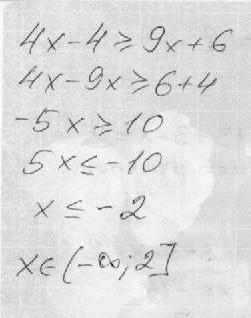 4x-4≥9x+6
4x-9x≥6+4
-5x≥10
5x≤-10
x≤-2
x∈(-∞;2]